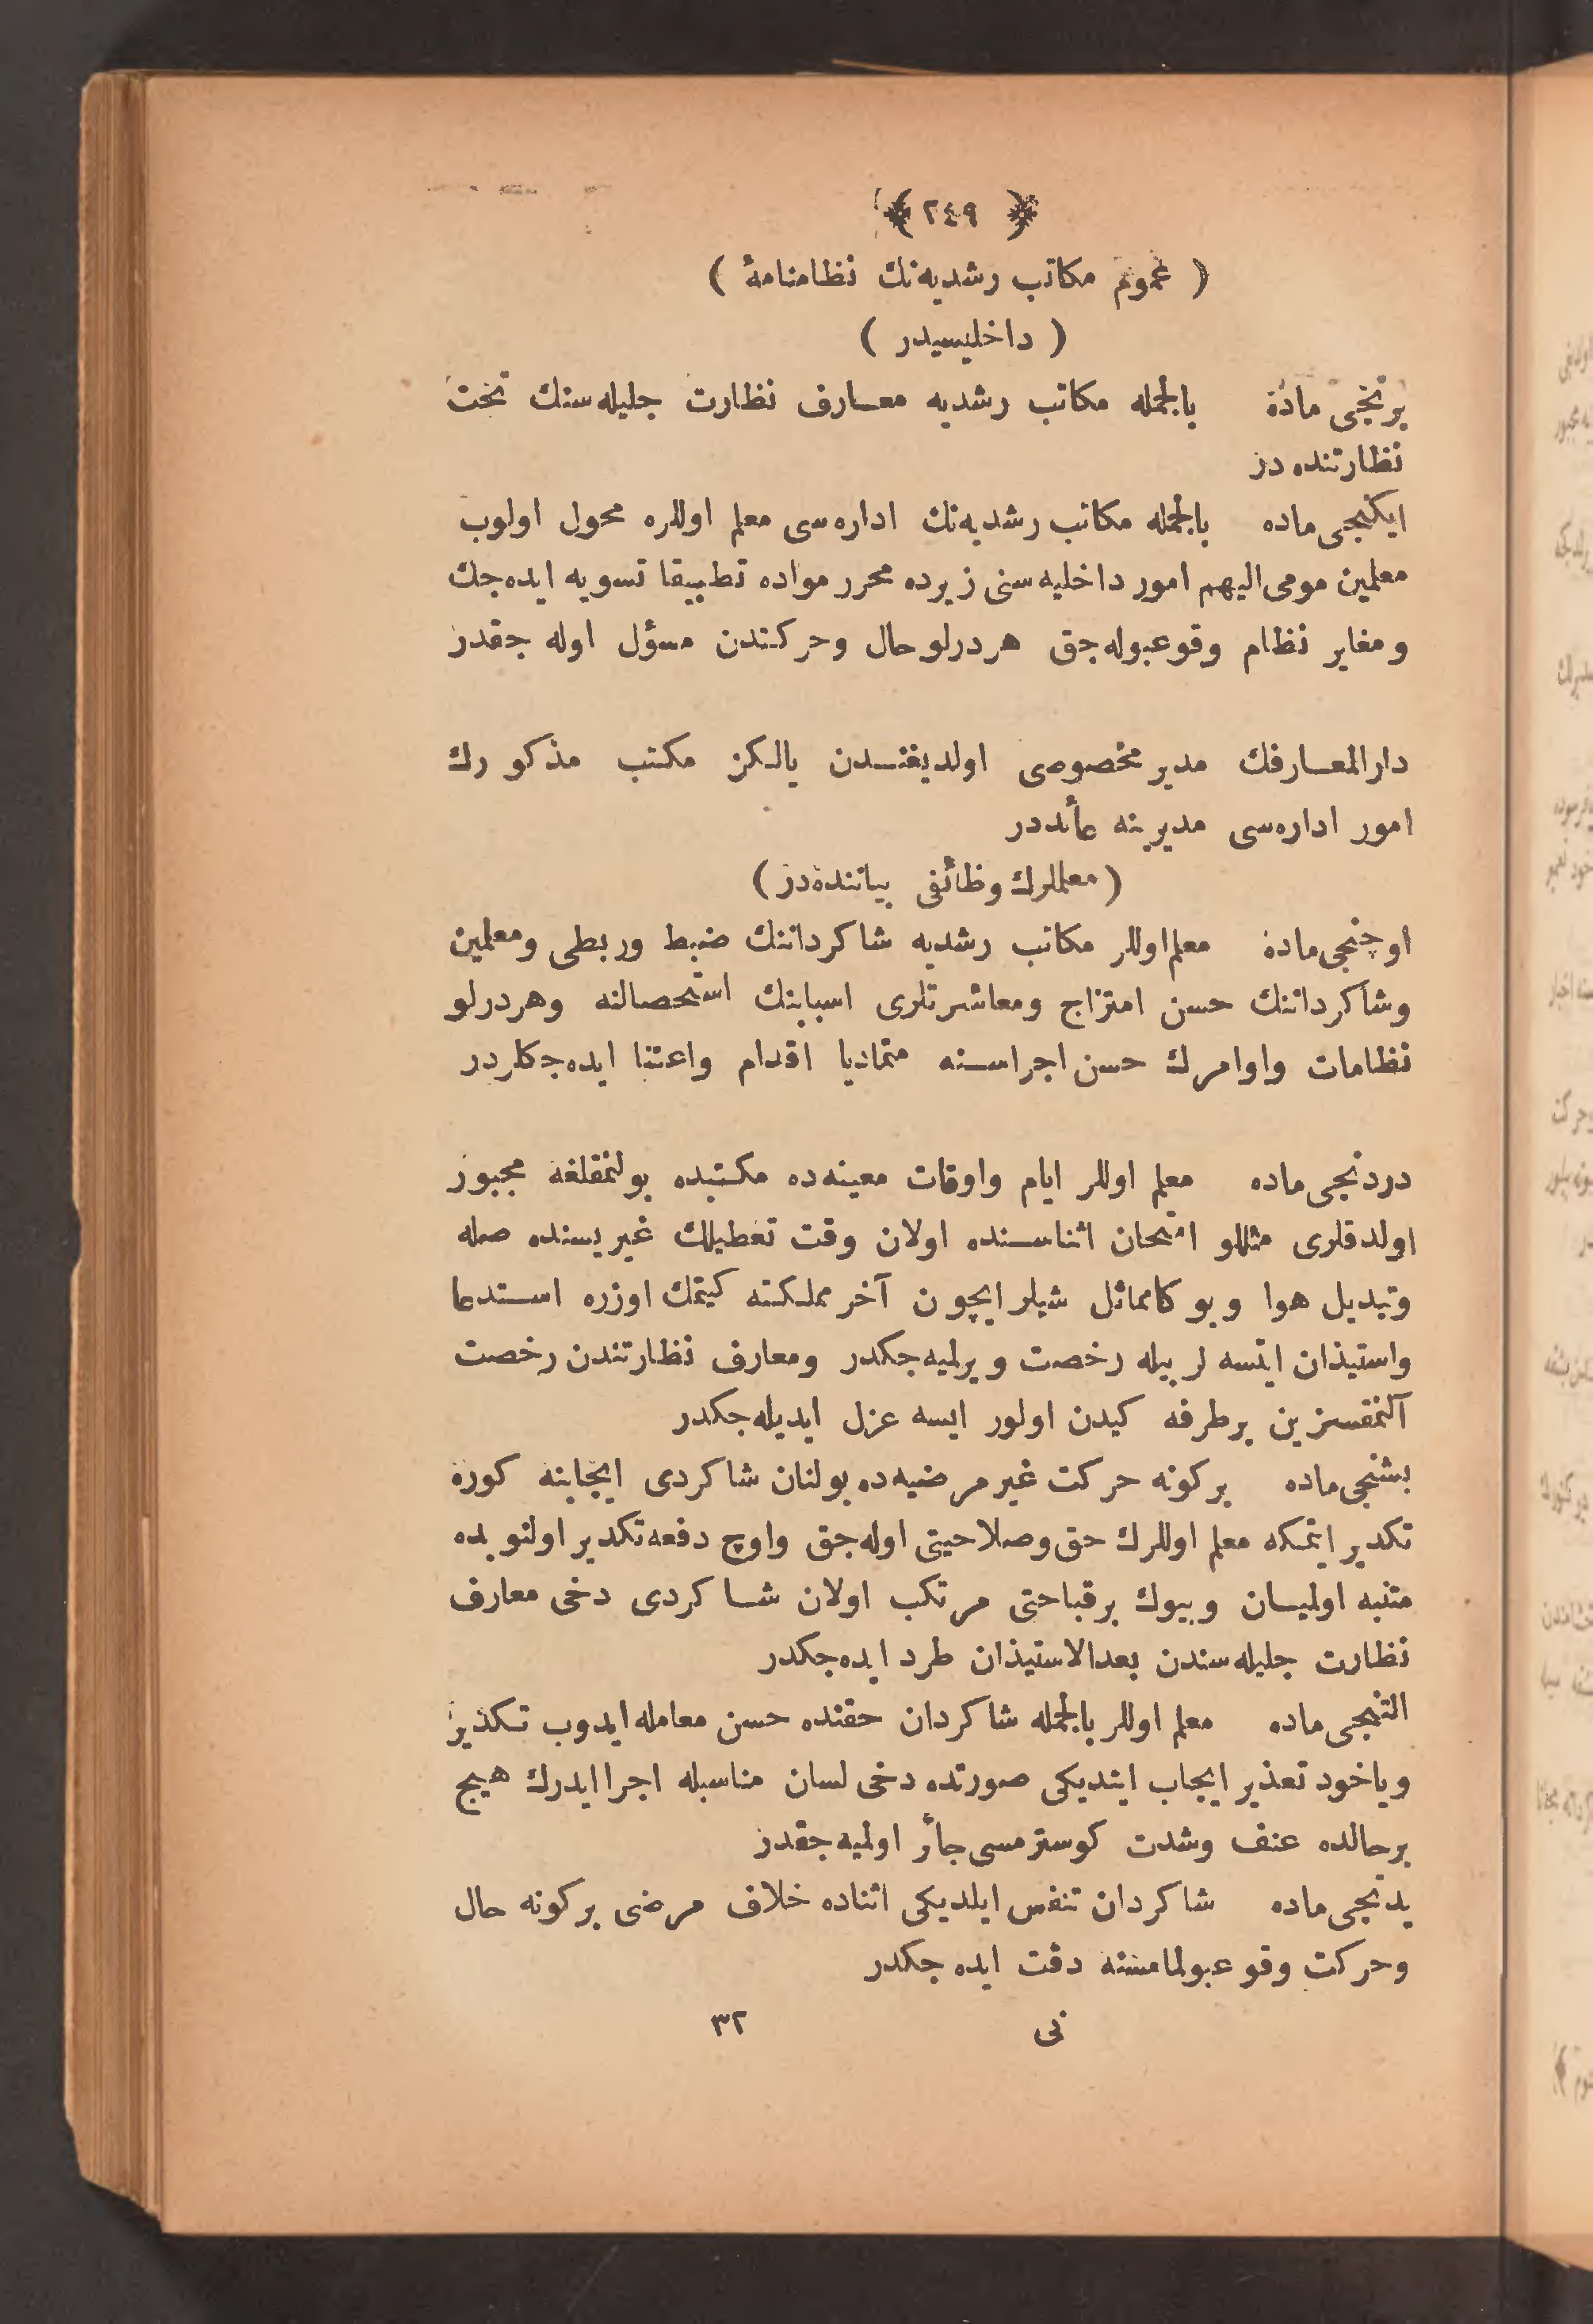 ﴿ ٢٤٩ ﴾
( عموم مكاتب رشديه‌نك نظامنامهٔ )
( داخليسيدر )
برنجى ماده بالجمله مكاتب رشديه معارف نظارت جليله‌سنك تحت
نظارتنده‌در
ايكنجى ماده بالجمله مكاتب رشديه‌نك اداره‌سى معلم اوللره محول اولوب
معلمين مومى اليهم امور داخليه‌سنى زيرده محرر مواده تطبيقا تسويه ايده‌جك
ومغاير نظام وقوعبوله‌جق هردرلو حال وحركتدن مسؤل اوله جقدر
دارالمعارفك مدير مخصوصى اولديغندن يالكز مكتب مذكورك
امور اداره‌سى مديرينه عأئددر
(معلملرك وظأئفى بياننده‌در)
اوچنجى ماده معلم اوللر مكاتب رشديه شاكرداننك ضبط وربطى ومعلمين
وشاكرداننك حسن امتزاج ومعاشرتلرى اسبابنك استحصالنه وهردرلو
نظامات واوامرك حسن اجراسنه متماديا اقدام واعتنا ايده‌جكلردر
دردنجى ماده معلم اوللر ايام واوقات معينه‌ده مكتبده بولنمقلغه مجبور
اولدقلرى مثللو امتحان اثناسنده اولان وقت تعطيلك غيريسنده صله
وتبديل هوا وبو كامماثل شيلر ايچون آخر مملكته كيتمك اوزره استدعا
واستيذان ايتسه لر بيله رخصت ويرلميه‌جكدر ومعارف نظارتندن رخصت
آلنمقسزين برطرفه كيدن اولور ايسه عزل ايديله‌جكدر
بشنجى ماده بركونه حركت غير مرضيه‌ده بولنان شاكردى ايجابنه كوره
تكدير ايتمكه معلم اوللرك حق وصلاحيتى اوله‌جق واوچ دفعه تكدير اولنوبده
متنبه اولميان وبيوك برقباحتى مرتكب اولان شاكردى دخى معارف
نظارت جليله‌سندن بعدالاستيذان طرد ايده‌جكدر
التنجى ماده معلم اوللر بالجمله شاكردان حقنده حسن معامله ايدوب تكدير
وياخود تعذير ايجاب ايتديكى صورتده دخى لسان مناسبله اجرا ايدرك هيچ
برحالده عنف وشدت كوسترمسى جأئز اولميه‌جقدر
يدنجى ماده شاكردان تنفس ايلديكى اثناده خلاف مرضى بركونه حال
وحركت وقوعبولمامسنه دقت ايده جكدر
نى ٣٢